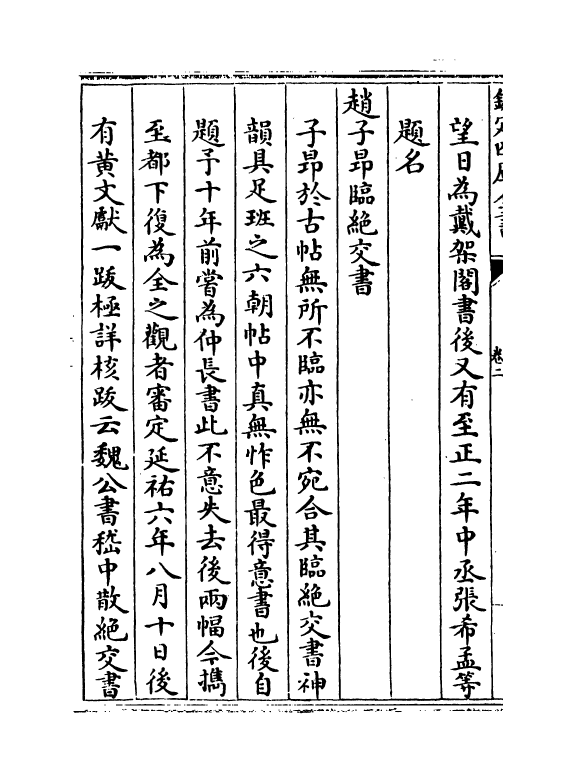 卷二
望日為戴架閣書後又有至正二年中丞張希孟等
題名
趙子昂臨絕交書
子昂於古帖無所不臨亦無不宛合其臨絕交書神
韻具足班之六朝帖中真無怍色最得意書也後自
題予十年前嘗為仲長書此不意失去後兩幅今攜
至都下復為全之觀者審定延祐六年八月十日後
有黃文獻一跋極詳核跋云魏公書嵇中散絕交書